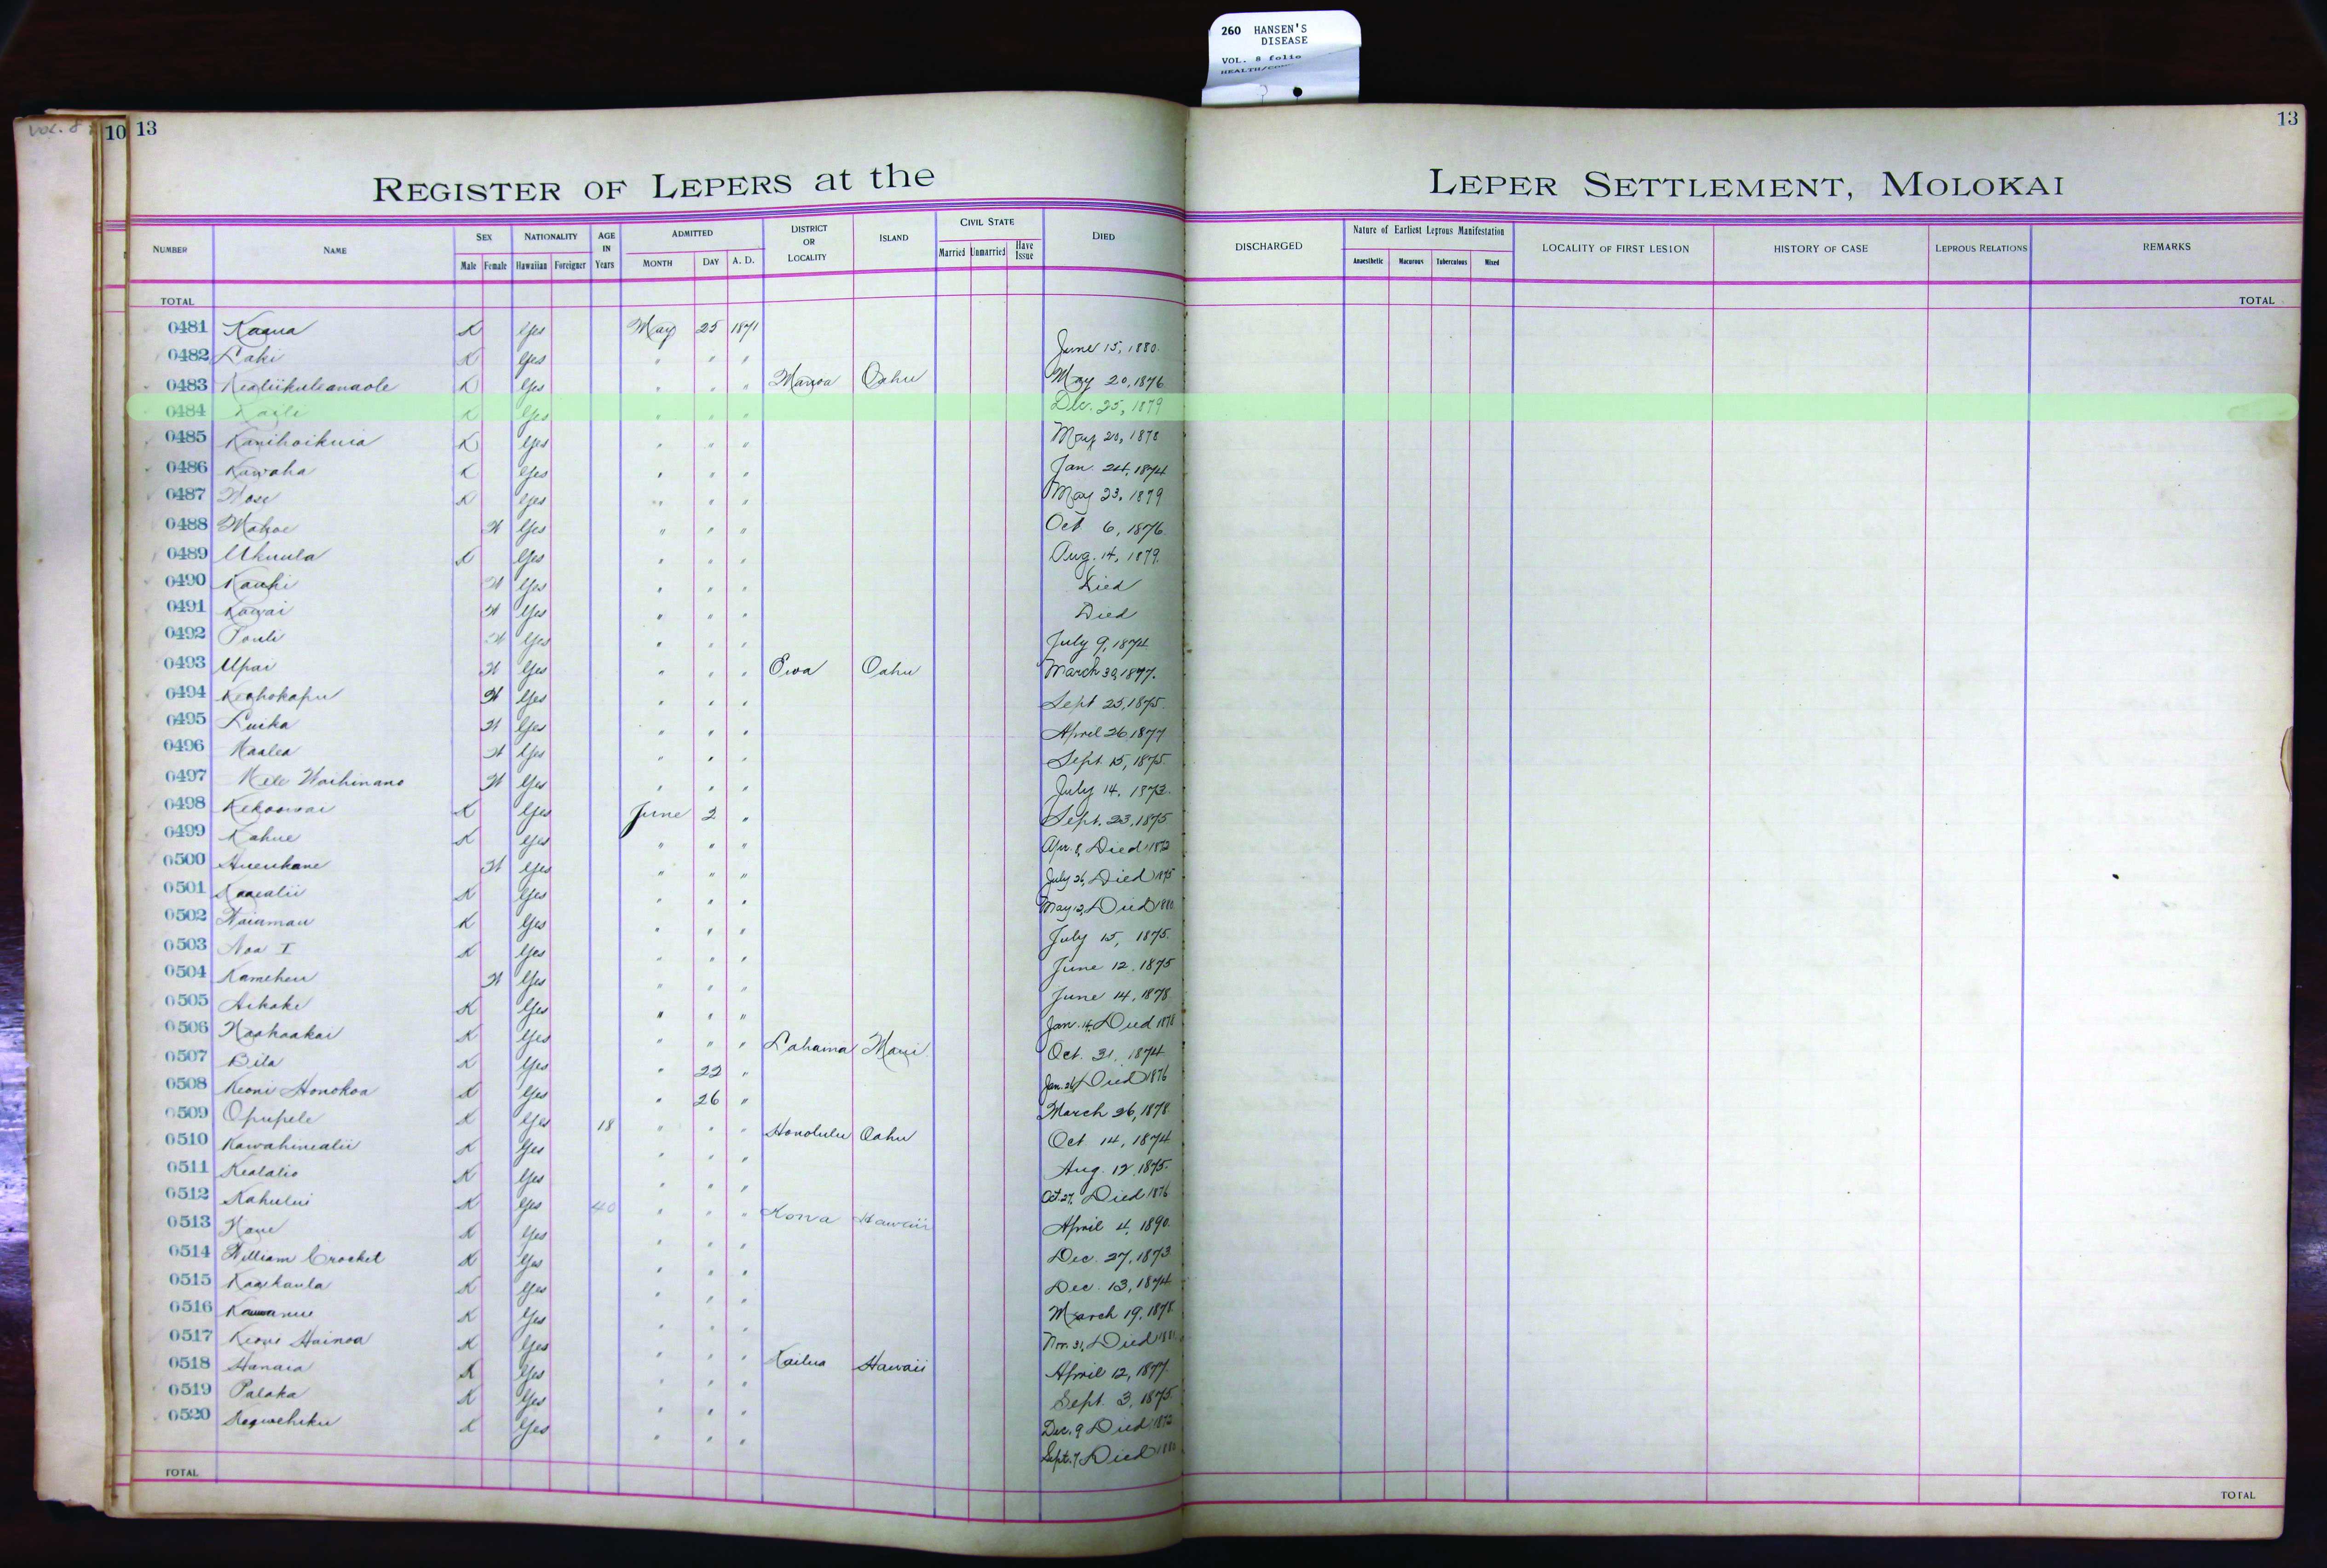 260 HANSEN'S
DISEASE
VOL. 8 folio
VOL. 8
10 13
13
REGISTER OF LEPERS at the LEPER SETTLEMENT, MOLOKAI
NUMBER NAME SEX Male Female NATIONALITY Hawaiian Foreigner AGE IN Years ADMITTED MONTH DAY A. D. DISTRICT OR LOCALITY ISLAND CIVIL STATE Married Unmarried Have Issue DIED DISCHARGED Nature of Earliest Leprous Manifestation Anaesthetic Macurous Tuberculous Mixed LOCALITY OF FIRST LESION HISTORY OF CASE LEPROUS RELATIONS REMARKS
TOTAL TOTAL
0481 Kaaua K Yes May 25 1871 June 15, 1880.
0482 Laki K Yes " " "
0483 Kealiikuleanaole K Yes " " " Manoa Oahu May 20, 1876
0484 K Yes " " " Dec. 25, 1879
0485 Kanihoikuia K Yes " " " May 20, 1878
0486 Kuwaha K Yes " " " Jan. 24, 1874
0487 K Yes " " " May 23, 1879
0488 Mahoe W Yes " " " Oct 6, 1876.
0489 Ukuula K Yes " " " Aug. 14, 1879.
0490 Kauhi W Yes " " " Died
0491 Kawai W Yes " " " Died
0492 Pauli W Yes " " " July 9, 1874
0493 Upai W Yes " " " Ewa Oahu March 30, 1877.
0494 Keohokapu W Yes " " " Sept 25, 1875.
0495 Luika W Yes " " " April 26 1877
0496 Kaalea W Yes " " " Sept. 15, 1875.
0497 Mele Waihinano W Yes " " " July 14, 1873.
0498 Kekoowai K Yes June 2 " Sept. 23, 1875
0499 Kahue K Yes " " " Apr. 8, Died 1872
0500 Hueukane W Yes " " " July 26, Died 1875
0501 Kaaealii K Yes " " " May 12, Died 1880
0502 Waiamau K Yes " " " July 15, 1875.
0503 Noa I K Yes " " " June 12, 1875
0504 Kameheu W Yes " " " June 14, 1878
0505 Aikake K Yes " " " Jan. 14, Died 1878
0506 Naahaakai K Yes " " " Lahaina Maui Oct. 31, 1874
0507 Bila K Yes " 22 " Jan. 26, Died 1876
0508 Keoni Honokoa K Yes " 26 " March 26, 1878
0509 Opupele K Yes 18 " " " Honolulu Oahu Oct 14, 1874
0510 Kawahinealii K Yes " " " Aug. 12, 1875.
0511 Kealalio K Yes " " " Oct. 27, Died 1876
0512 Kahului K Yes 40 " " " Kona Hawaii April 4, 1890.
0513 K Yes " " " Dec. 27, 1873.
0514 William Crocket K Yes " " " Dec. 13, 1874
0515 Kaaikaula K Yes " " " March 19, 1878
0516 K Yes " " " Nov. 31, Died 1881
0517 Keoni Hainoa K Yes " " " Kailua Hawaii April 12, 1877.
0518 Hanaia K Yes " " " Sept. 3, 1875.
0519 Palaka K Yes " " " Dec. 9 Died 1872
0520 K Yes " " " Sept. 7, Died 1880
TOTAL TOTAL